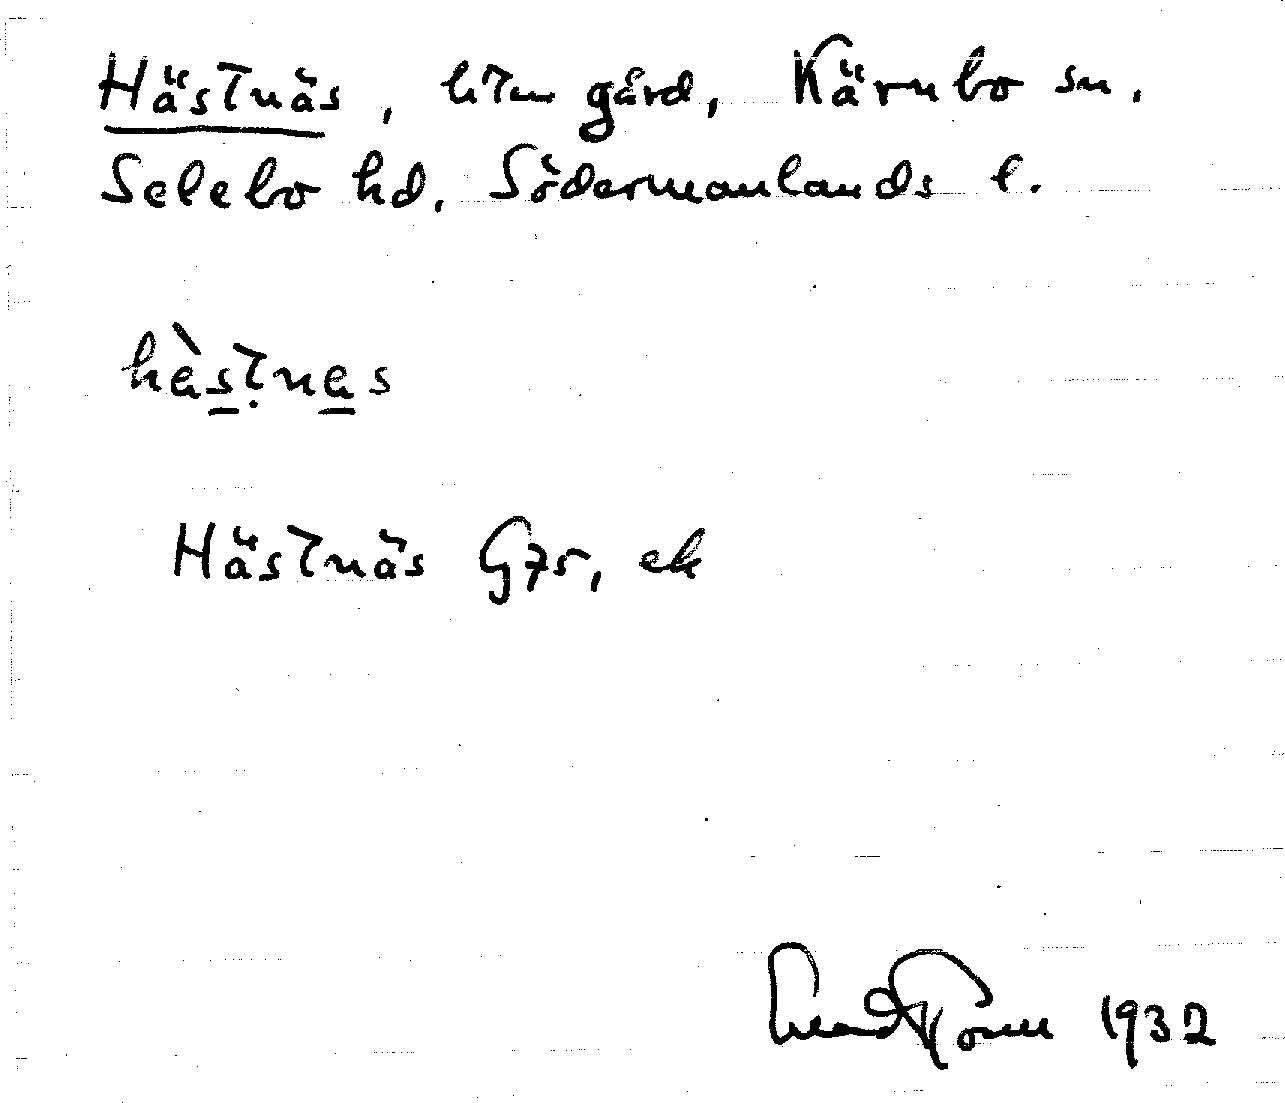 Hästnäs, liten gård, Kärnbo sn.
Selebo hd. Södermanlands l.
hàstnas
Hästnäs G75, ek
1932